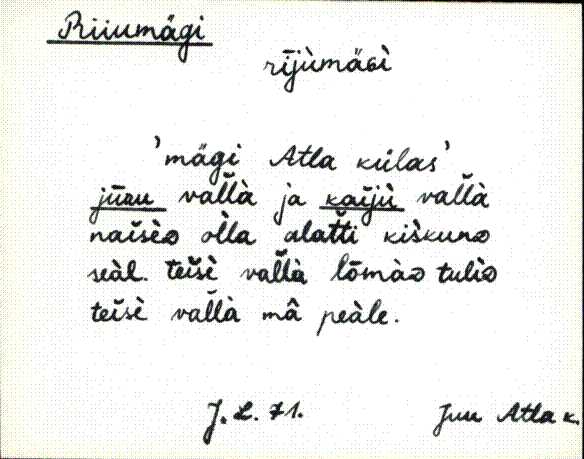 Riiumägi
rījùmäɢì
'mägi Atla külas'
jūru vallà ja kaijù vallà
naisèᴅ olla alatti kiskunᴅ
seàl. teisè vallà lōmàᴅ tuliᴅ
teisè vallà mâ peàle.
J. L. 71. Juu Atla k.